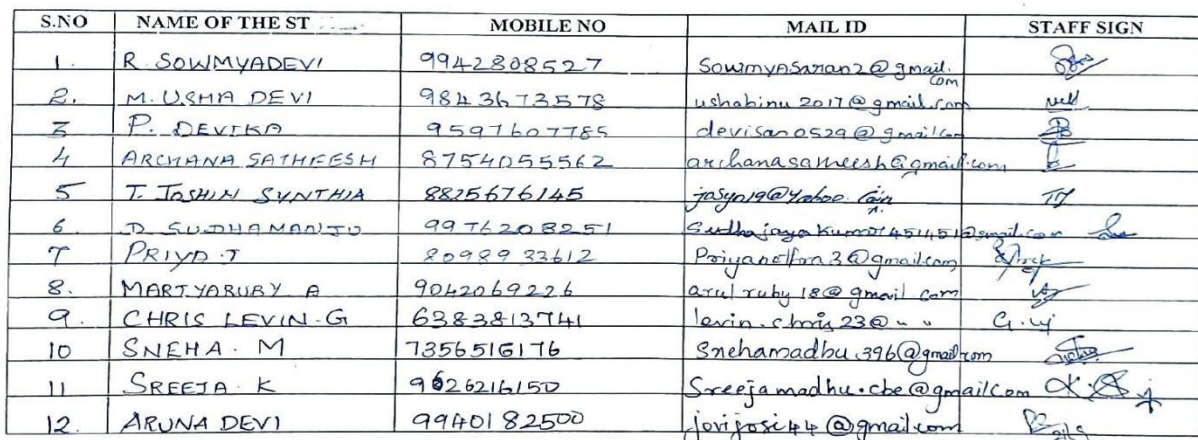 S.NO NAME OF THE ST MOBILE NO MAIL ID STAFF SIGN
1. R. SOWMYADEVI 9942808527 Sowmyasaran2@gmail.com
2. M. USHA DEVI 9843673578 ushabinu2017@gmail.com
3 P. DEVIKA 9597607785 devisan0529@gmail.com
4 ARCHANA SATHEESH 8754055562 archanasatheesh@gmail.com
5 T. JOSHIN SYNTHIA 8825676145 josyn19@yahoo.com
6 D SUDHAMANJU 9976208251 Sudhajayakumar451451@gmail.com
7 PRIYA.J 8098933612 @gmail.com
8. MARIYARUBY A 9042069226 arulruby18@gmail com
9. CHRIS LEVIN.G 6383813741 levin.chris23@ " " G.
10 SNEHA. M 7356516176 Snehamadhu.396@gmail.com
11 SREEJA. K 9626216150 Sreejamadhu.cbe@gmailcom
12. ARUNA DEVI 9940182500 jovijosi44@gmail.com